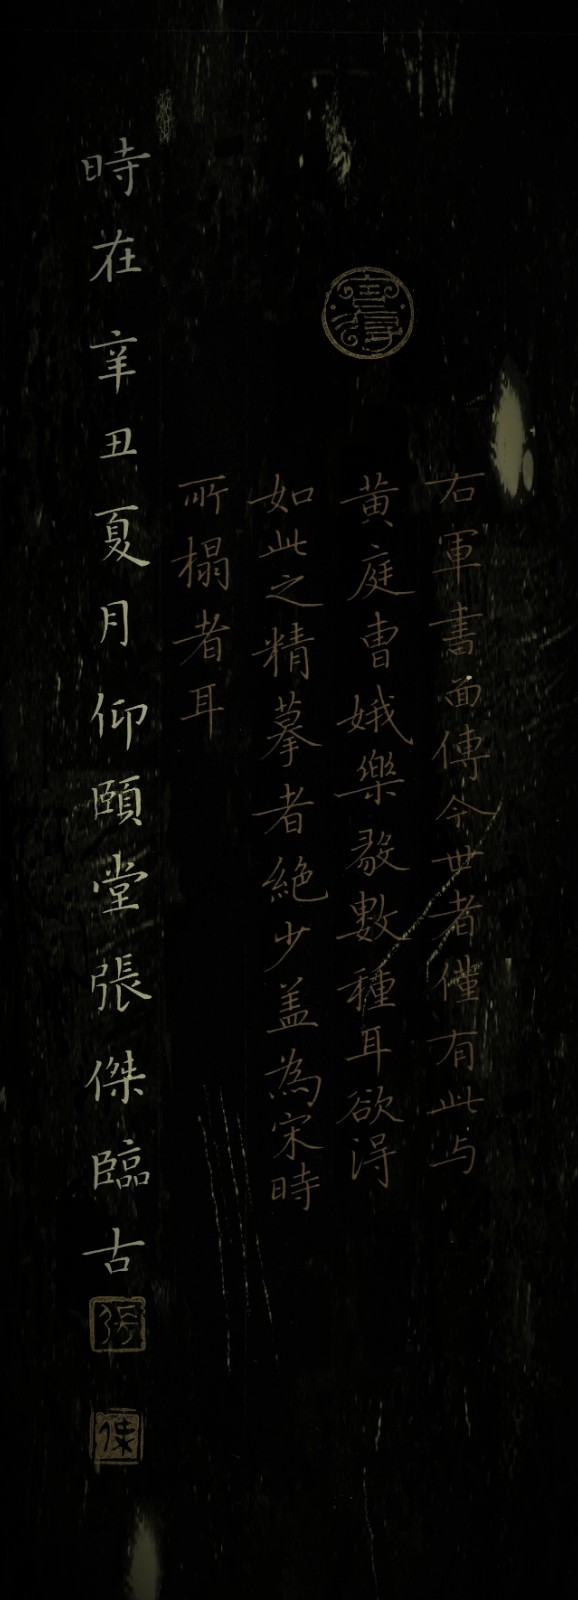 右軍書面傳今世者僅有此与
黃庭曹娥樂毅數種耳欲得
如此之精摹者絶少盖為宋時
所榻者耳
時在辛丑夏月仰頤堂張傑臨古
張
傑